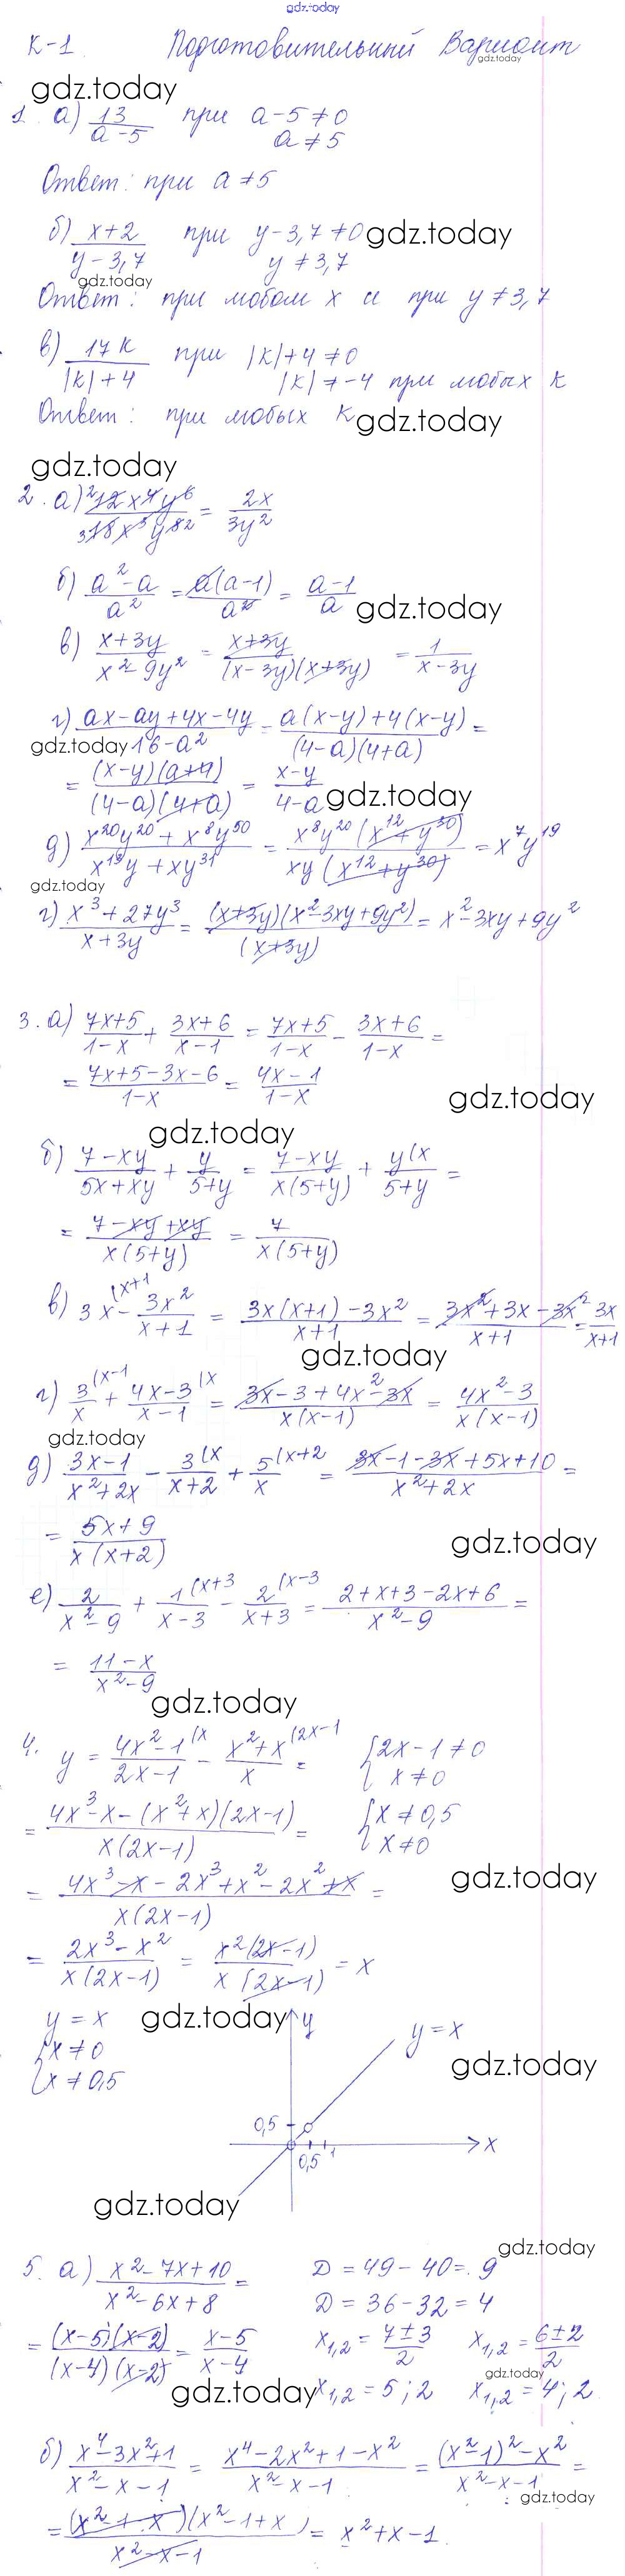 gdz.today
К-1. Подготовительный Вариант
gdz.today
gdz.today
1. а) 13/(a-5) при a-5≠0
a≠5
Ответ: при a≠5
б) (x+2)/(y-3,7) при y-3,7≠0 gdz.today
y≠3,7
gdz.today
Ответ: при любом x и при y≠3,7
в) 17k/(|k|+4) при |k|+4≠0
|k|≠-4 при любых k
Ответ: при любых k gdz.today
gdz.today
2. а) 12x⁴y⁶/(18x³y⁸) = 2x/(3y²)
б) (a²-a)/a² = a(a-1)/a² = (a-1)/a gdz.today
в) (x+3y)/(x²-9y²) = (x+3y)/((x-3y)(x+3y)) = 1/(x-3y)
г) (ax-ay+4x-4y)/(16-a²) = (a(x-y)+4(x-y))/((4-a)(4+a)) =
gdz.today
= (x-y)(a+4)/((4-a)(4+a)) = (x-y)/(4-a) gdz.today
д) (x²⁰y²⁰+x⁸y⁵⁰)/(x¹³y+xy³¹) = x⁸y²⁰(x¹²+y³⁰)/(xy(x¹²+y³⁰)) = x⁷y¹⁹
gdz.today
г) (x³+27y³)/(x+3y) = (x+3y)(x²-3xy+9y²)/(x+3y) = x²-3xy+9y²
3. а) (7x+5)/(1-x) + (3x+6)/(x-1) = (7x+5)/(1-x) - (3x+6)/(1-x) =
= (7x+5-3x-6)/(1-x) = (4x-1)/(1-x)
gdz.today
gdz.today
б) (7-xy)/(5x+xy) + y/(5+y) = (7-xy)/(x(5+y)) + y(x/(5+y) =
= (7-xy+xy)/(x(5+y)) = 7/(x(5+y))
в) 3x(x+1 - 3x²/(x+1) = (3x(x+1)-3x²)/(x+1) = (3x²+3x-3x²)/(x+1) = 3x/(x+1)
gdz.today
г) 3(x-1/x + 4x-3(x/(x-1) = (3x-3+4x²-3x)/(x(x-1)) = (4x²-3)/(x(x-1))
gdz.today
д) (3x-1)/(x²+2x) - 3(x/(x+2) + 5(x+2/x = (3x-1-3x+5x+10)/(x²+2x) =
= (5x+9)/(x(x+2)) gdz.today
е) 2/(x²-9) + 1(x+3/(x-3) - 2(x-3/(x+3) = (2+x+3-2x+6)/(x²-9) =
= (11-x)/(x²-9)
gdz.today
4. y = 4x²-1(x/(2x-1) - x²+x(2x-1/x = {2x-1≠0
x≠0
= (4x³-x-(x²+x)(2x-1))/(x(2x-1)) = {x≠0,5
x≠0
= (4x³-x-2x³+x²-2x²+x)/(x(2x-1)) = gdz.today
= (2x³-x²)/(x(2x-1)) = x²(2x-1)/(x(2x-1)) = x
y=x gdz.today y y=x
{x≠0 gdz.today
x≠0,5
0,5
x
0,5 1
gdz.today
gdz.today
5. а) (x²-7x+10)/(x²-6x+8) = D=49-40=9
D=36-32=4
= (x-5)(x-2)/((x-4)(x-2)) = (x-5)/(x-4) x₁,₂=(7±3)/2 x₁,₂=(6±2)/2
gdz.today
gdz.today x₁,₂=5;2 x₁,₂=4;2
б) (x⁴-3x²+1)/(x²-x-1) = (x⁴-2x²+1-x²)/(x²-x-1) = ((x²-1)²-x²)/(x²-x-1) =
gdz.today
= (x²-1-x)(x²-1+x)/(x²-x-1) = x²+x-1.